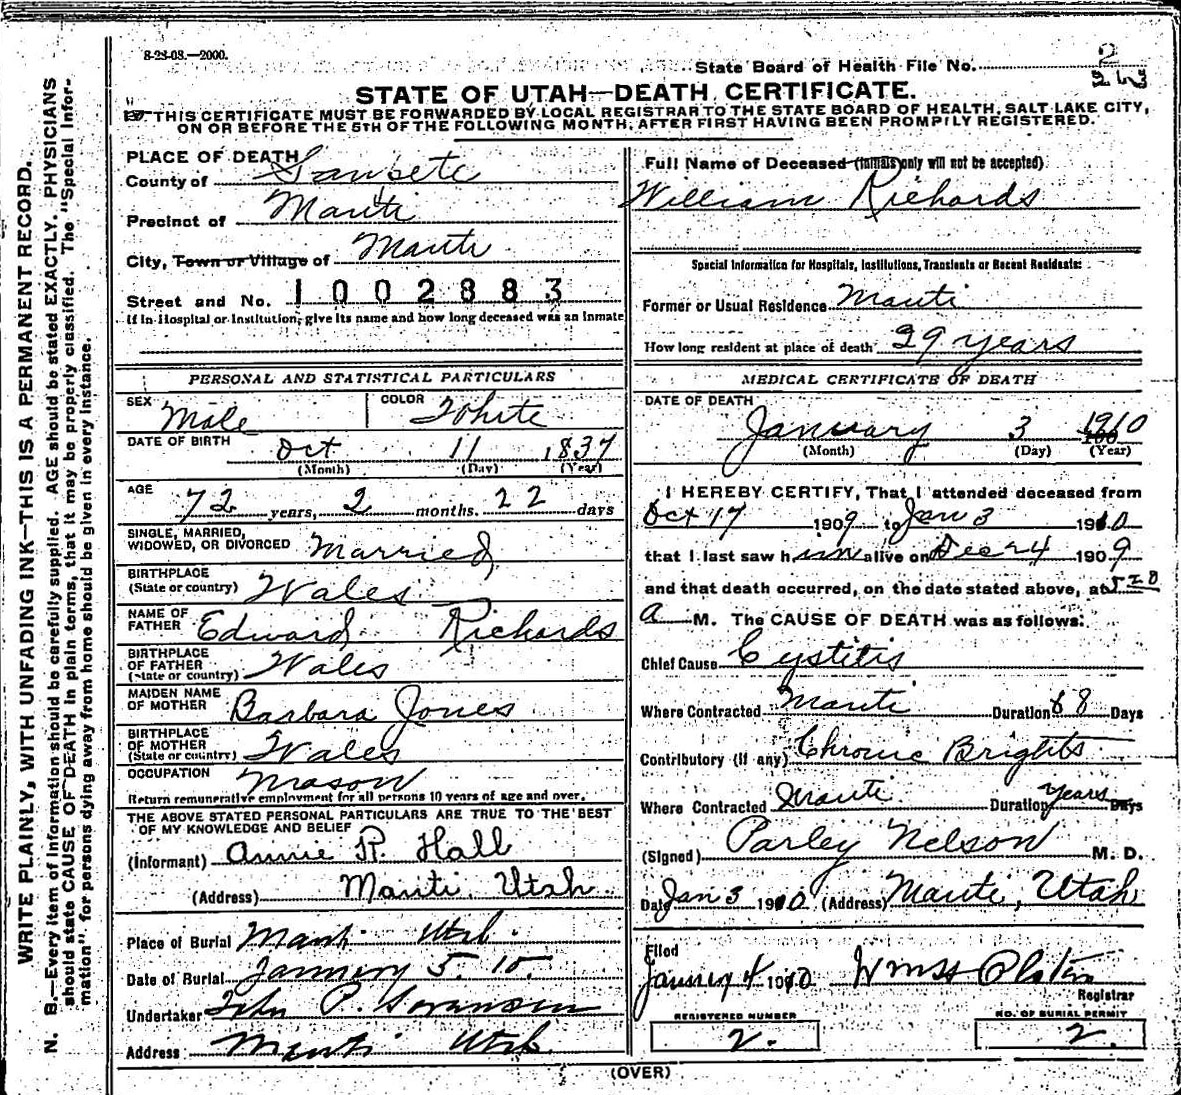 8-28-08.—2000.
State Board of Health File No.
STATE OF UTAH—DEATH CERTIFICATE.
THIS CERTIFICATE MUST BE FORWARDED BY LOCAL REGISTRAR TO THE STATE BOARD OF HEALTH, SALT LAKE CITY,
ON OR BEFORE THE 5TH OF THE FOLLOWING MONTH, AFTER FIRST HAVING BEEN PROMPTLY REGISTERED.
WRITE PLAINLY, WITH UNFADING INK—THIS IS A PERMANENT RECORD.
N. B.—Every item of information should be carefully supplied. AGE should be stated EXACTLY. PHYSICIANS
should state CAUSE OF DEATH in plain terms, that it may be properly classified. The "Special Infor-
mation" for persons dying away from home should be given in every instance.
PLACE OF DEATH
County of Sanpete
Precinct of Manti
City, Town or Village of Manti
Street and No. 1002883
If in Hospital or Institution, give its name and how long deceased was an inmate
PERSONAL AND STATISTICAL PARTICULARS
SEX Male COLOR White
DATE OF BIRTH Oct 11 1837
(Month) (Day) (Year)
AGE 72 years, 2 months. 22 days
SINGLE, MARRIED,
WIDOWED, OR DIVORCED Married
BIRTHPLACE
(State or country) Wales
NAME OF
FATHER Edward Richards
BIRTHPLACE
OF FATHER
(State or country) Wales
MAIDEN NAME
OF MOTHER Barbara Jones
BIRTHPLACE
OF MOTHER
(State or country) Wales
OCCUPATION Mason
Return remunerative employment for all persons 10 years of age and over.
THE ABOVE STATED PERSONAL PARTICULARS ARE TRUE TO THE BEST
OF MY KNOWLEDGE AND BELIEF
(Informant) Annie R. Hall
(Address) Manti, Utah
Place of Burial Manti Utah.
Date of Burial January 5. 10.
Undertaker John P. Sorensen
Address Manti Utah
Full Name of Deceased (Initials only will not be accepted)
William Richards
Special Information for Hospitals, Institutions, Transients or Recent Residents:
Former or Usual Residence Manti
How long resident at place of death 29 years
MEDICAL CERTIFICATE OF DEATH
DATE OF DEATH
January 3 1910
(Month) (Day) (Year)
I HEREBY CERTIFY, That I attended deceased from
Oct 17 1909 to Jan 3 1910
that I last saw him alive on Dec 24 1909
and that death occurred, on the date stated above, at 5 20
A M. The CAUSE OF DEATH was as follows:
Chief Cause Cystitis
Where Contracted Manti Duration 88 Days
Contributory (if any) Chronic Brights
Where Contracted Manti Duration years Days
(Signed) Parley Nelson M. D.
Date Jan 3 1910 (Address) Manti, Utah
Filed
January 4 1910
Registrar
REGISTERED NUMBER
2.
NO. OF BURIAL PERMIT
2.
(OVER)